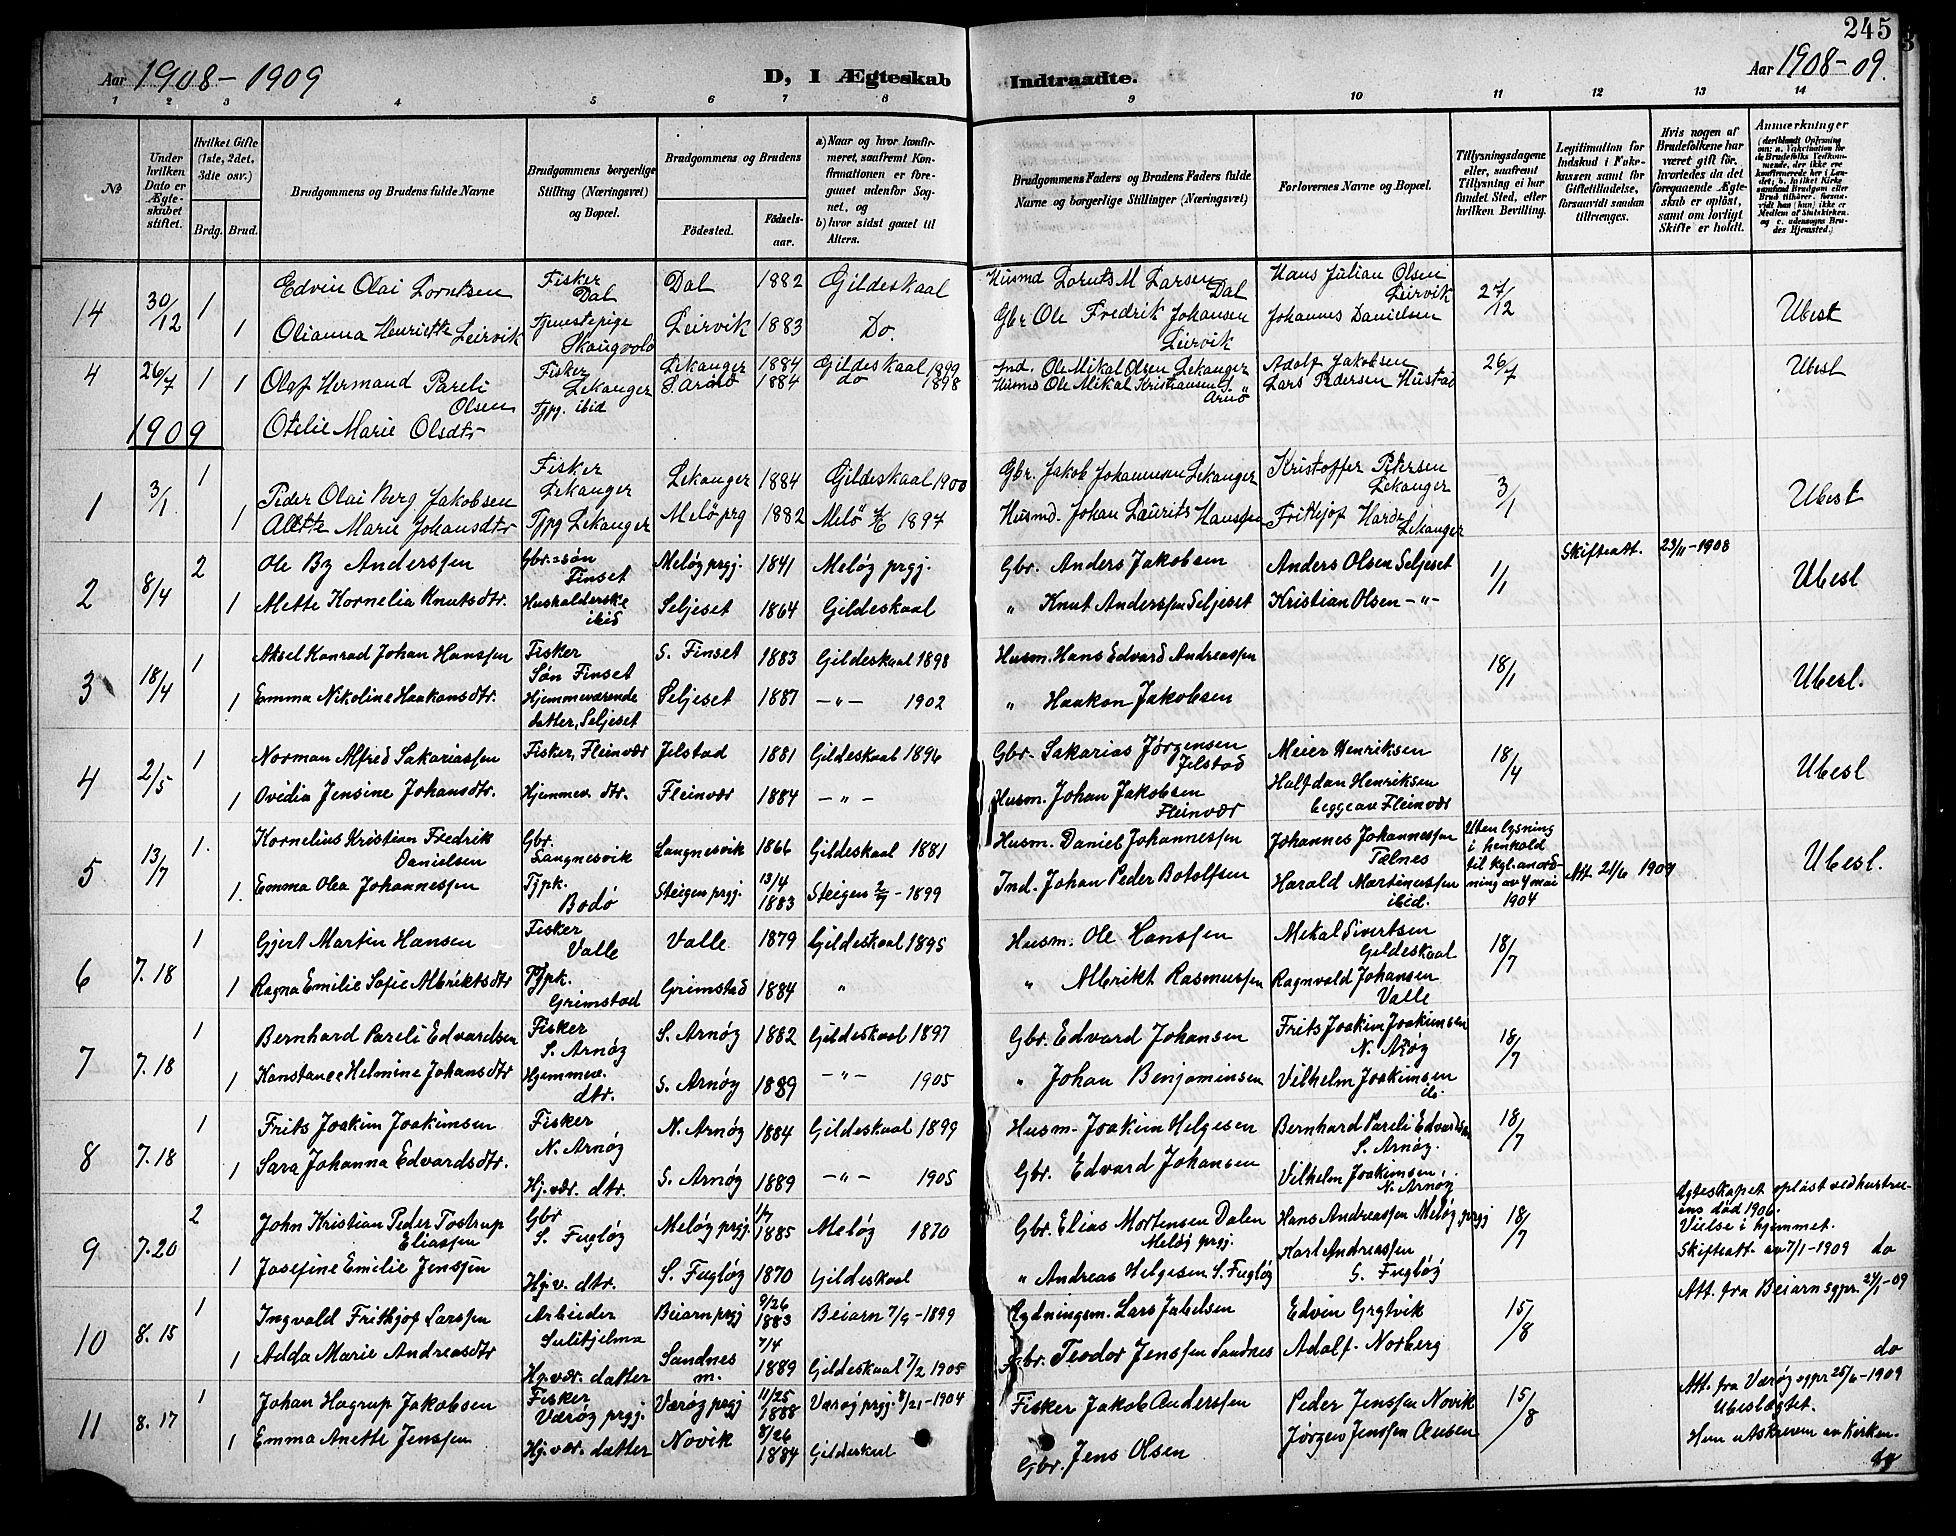 245
Aar 1908-1909 D, I Ægteskab Indtraadte. Aar 1908-09.
1 2 3 4 5 6 7 8 9 10 11 12 13 14
№
Under hvilken Dato er Ægteskabet stiftet.
Hvilket Gifte (1ste, 2det, 3die osv.)
Brdg. Brud.
Brudgommens og Brudens fulde Navne
Brudgommens borgerlige Stilling (Næringsvei) og Bopæl.
Brudgommens og Brudens
Fødested. Fødselsaar.
a) Naar og hvor konfirmeret, saafremt Konfirmationen er foregaaet udenfor Sognet, og
b) hvor sidst gaaet til Alters.
Brudgommens Faders og Brudens Faders fulde Navne og borgerlige Stillinger (Næringsvei)
Forlovernes Navne og Bopæl.
Tillysningsdagene eller, saafremt Tillysning ei har fundet Sted, efter hvilken Bevilling.
Legitimation for Indskud i Fatekassen samt for Giftetilladelse, forsaavidt saadan tiltrænges.
Hvis nogen af Brudefolkene har været gift før, hvorledes da det foregaaende Ægteskab er opløst, samt om lovligt Skifte er holdt.
Anmærkninger
14 30/12 1 Edvin Olai Lorntsen Fisker Dal Dal 1882 Gildeskaal Husmd Lornts M Larsen Dal Hans Julian Olsen Leirvik 27/12 Ubesl
1 Olianna Henriette Leirvik Tjenestepige Skaugvold Leirvik 1883 Do. Gbr Ole Fredrik Johansen Leirvik Johannes Danielsen
4 26/7 1 1 Olaf Hermand Pareli Olsen Fisker Lekanger Lekanger 1884 Gildeskaal 1899 Ind. Ole Mikal Olsen Lekanger Adolf Jakobsen 26/7 Ubesl
Otelie Marie Olsdtr Tjpg. ibid S. Arnö 1884 do 1898 Husmd Ole Mikal Kristiansen S. Arnö Lars Pedersen Hustad
1909
1 3/1. 1 Peder Olai Berg Jakobsen Fisker Lekanger Lekanger 1884 Gildeskaal 1900 Gbr. Jakob Johannesen Lekanger Kristoffer Petersen Lekanger 3/1 Ubesl
1 Alette Marie Johansdtr Tjpg Lekanger Melöprg 1882 Melö 1897 Husmd. Johan Laurits Hanssen Frithjof Harder Lekanger
2 8/4 2 Ole By Anderssen Gbr. søn Finset Meløy prgj. 1841 Meløy prgj. Gbr. Anders Jakobsen Anders Olsen Seljeset 1/1 Skifteatt. 23/11-1908 Ubesl
1 Mette Kornelia Knutsdtr. Husholderske ibid Seljeset 1864 Gildeskaal " Knut Anderssen Seljeset Kristian Olsen -"-
3 18/4 1 Aksel Konrad Johan Hanssen Fisker Søn Finset S. Finset 1883 Gildeskaal 1898 Husm. Hans Edvard Andreassen 18/1 Ubesl.
1 Emma Nikoline Haakonsdtr. Hjemmeværende datter, Seljeset Seljeset 1887 -"- 1902 " Haakon Jakobsen
4 2/5 1 Norman Alfred Sakariassen Fisker, Fleinvær Jelstad 1881 Gildeskaal 1896 Gbr. Sakarias Jørgensen Jelstad Meier Henriksen 18/4 Ubesl
1 Ovidia Jensine Johansdtr. Hjemmev. dtr. Fleinvær 1884 -"- Husm. Johan Jakobsen Fleinvær Halfdan Henriksen begge av Fleinvær
5 13/7 1. Kornelius Kristian Fredrik Danielsen Gbr. Langnesvik Langnesvik 1866 Gildeskaal 1881 Husm. Daniel Johannessen Johannes Johannessen Tælnes Uten lysning i henhold til kgl. anordning av 4 mai 1904 Att. 21/6 1909 Ubesl.
1. Emma Olea Johannessen Tjpk. Bodø Steigen prgj. 13/4 1883 Steigen 2/7-1899 Ind. Johan Peder Botolfsen Harald Martinussen ibid.
6 7.18 1 Gjert Martin Hansen Fisker Valle Valle 1879 Gildeskaal 1895 Husm. Ole Hanssen Mekal Sivertsen Gildeskaal 18/7
1 Ragna Emilie Sofie Albriktsdtr Tjpk. Grimstad Grimstad 1884 " " Albrikt Rasmussen Ragnvald Johansen Valle
7 7.18 1 Bernhard Pareli Edvardsen Fisker S. Arnøy S. Arnøy 1882 Gildeskaal 1897 Gbr. Edvard Johansen Frits Joakim Joakimsen N. Arøy 18/7
1 Konstanse Helmine Johansdtr Hjemmev. dtr. S. Arnøy 1889 -"- 1905 " Johan Benjaminsen Vilhelm Joakimsen ib.
8 7.18 1 Frits Joakim Joakimsen Fisker N. Arnøy N. Arnøy 1884 Gildeskaal 1899 Husm. Joakim Helgesen Bernhard Pareli Edvardsen S. Arnøy. 18/7
1 Sara Johanna Edvardsdtr. Hj.vær. dtr. S. Arnøy 1889 -"- 1905 Gbr. Edvard Johansen Vilhelm Joakimsen, N. Arnøy
9 7.20 2 John Kristian Peder Tostrup Eliassen Gbr S. Fugløy Meløy prgj. 1/7 1885 Meløy 1870 Gbr. Elias Mortensen Dalen Meløy prgj. Hans Andreassen Meløy prgj 18/7 Ægteskapet opløst ved hustruens død 1906. Vielse i hjemmet. Skifteatt. av 7/1-1909 do
1 Josefine Emilie Jenssen Hj.v. dtr. S. Fugløy 1870 Gildeskaal " Andreas Helgesen S. Fugløy Karl Andreassen S. Fugløy
10 8.15 1 Ingvald Frithjof Larssen Arbeider Sulitjelma Beiarn prgj 9/26 1883 Beiarn 7/9-1899 Lars Jakelsen Edvin 15/8 Att. fra Beiarn sgpr. 24/1-09
1 Adda Marie Andreasdtr Hj.vær. datter Sandnes m. 7/4 1889 Gildeskaal 7/2 1905 Gbr. Teodor Jenssen Sandnes Adolf Norberg do
11 8.17 1 Johan Hagrup Jakobsen Fisker Værøy prgj. Værøy prgj 11/25 1888 Værøy prgj. 8/21-1904 Fisker Jakob Anderssen Peder Jenssen Novik 15/8 Att. fra Værøy sgpr 25/6-1909 Ubeslægtet.
1 Emma Anette Jenssen Hj.vær. datter Novik 8/26 1884 Gildeskaal Gbr. Jens Olsen Jørgen Jenssen Hun utskreven av kirken.